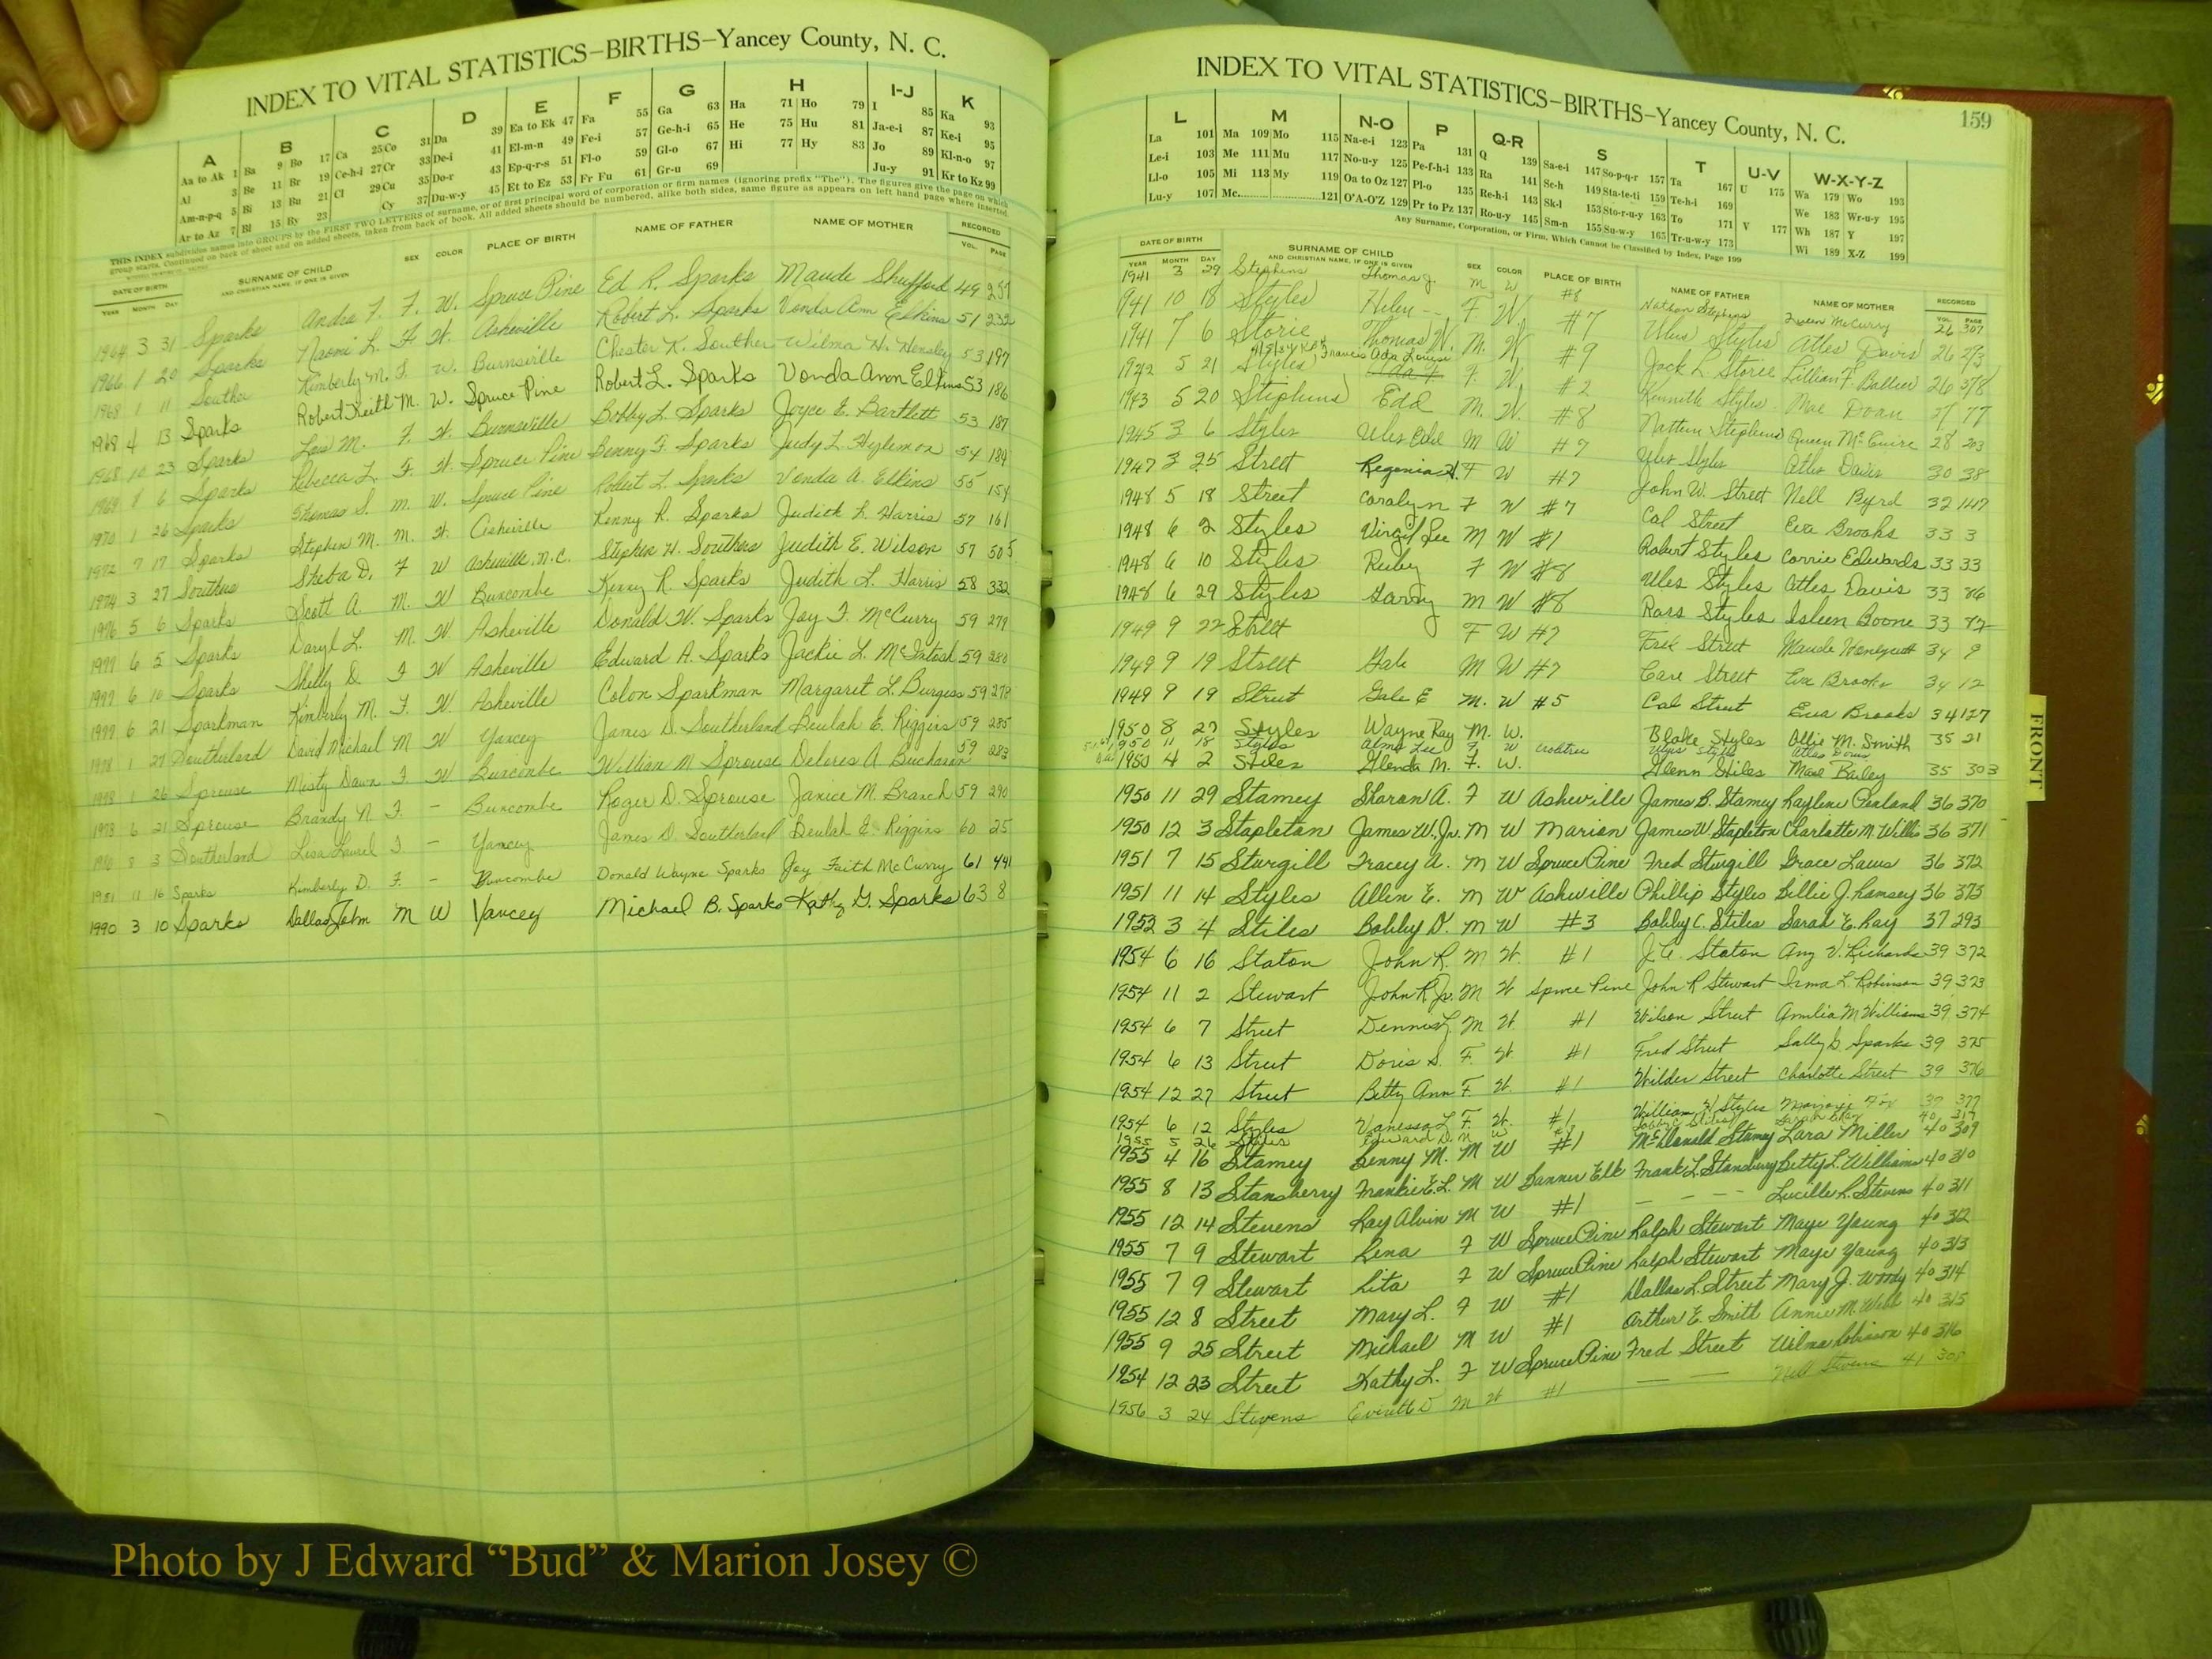 INDEX TO VITAL STATISTICS–BIRTHS–Yancey County, N. C.
A B C D E F G H I-J K
Aa to Ak 1 Ba 9 Bo 17 Ca 25 Co 31 Da 39 Ea to Ek 47 Fa 55 Ga 63 Ha 71 Ho 79 I 85 Ka 93
Al 3 Be 11 Br 19 Ce-h-i 27 Cr 33 De-i 41 El-m-n 49 Fe-i 57 Ge-h-i 65 He 75 Hu 81 Ja-e-i 87 Ke-i 95
Am-n-p-q 5 Bi 13 Bu 21 Cl 29 Cu 35 Do-r 43 Ep-q-r-s 51 Fl-o 59 Gl-o 67 Hi 77 Hy 83 Jo 89 Kl-n-o 97
Ar to Az 7 Bl 15 By 23 Cy 37 Du-w-y 45 Et to Ez 53 Fr Fu 61 Gr-u 69 Ju-y 91 Kr to Kz 99
THIS INDEX subdivides names into GROUPS by the FIRST TWO LETTERS of surname, or of first principal word of corporation or firm names (ignoring prefix "The"). The figures give the page on which
group starts. Continued on back of sheet and on added sheets, taken from back of book. All added sheets should be numbered, alike both sides, same figure as appears on left hand page where inserted.
DATE OF BIRTH SURNAME OF CHILD SEX COLOR PLACE OF BIRTH NAME OF FATHER NAME OF MOTHER RECORDED
YEAR MONTH DAY AND CHRISTIAN NAME, IF ONE IS GIVEN VOL. PAGE
1964 3 31 Sparks Andra F. F. W. Spruce Pine Ed R. Sparks Maude Shufford 49 257
1966 1 20 Sparks Naomi L. F W. Asheville Robert L. Sparks Vonda Ann Elkins 51 232
1968 1 11 Souther Kimberly M. F. W. Burnsville Chester K. Souther Wilma H. Hensley 53 197
1968 4 13 Sparks Robert Keith M. W. Spruce Pine Robert L. Sparks Vonda Ann Elkins 53 186
1968 10 23 Sparks Lois M. F. W. Burnsville Bobby L. Sparks Joyce E. Bartlett 53 187
1969 8 6 Sparks Rebecca L. F. W. Spruce Pine Benny F. Sparks Judy L. Hylemon 54 184
1970 1 26 Sparks Thomas S. M. W. Spruce Pine Robert L. Sparks Vonda A. Elkins 55 154
1972 7 17 Sparks Stephen M. M. W. Asheville Kenny R. Sparks Judith L. Harris 57 161
1974 3 27 Souther Sheba D. F W Asheville, N.C. Stephen H. Southers Judith E. Wilson 57 505
1976 5 6 Sparks Scott A. M. W Buncombe Kenny R. Sparks Judith L. Harris 58 332
1977 6 5 Sparks Daryl L. M. W. Asheville Donald W. Sparks Joy F. McCurry 59 279
1977 6 10 Sparks Shelly D F W Asheville Edward A. Sparks Jackie L. McIntosh 59 280
1977 6 21 Sparkman Kimberly M. F. W. Asheville Colon Sparkman Margaret L. Burgess 59 278
1978 1 27 Southerland David Michael M W Yancey James D. Southerland Beulah E. Riggins 59 285
1978 1 26 Sprouse Misty Dawn F. W Buncombe William M Sprouse Delores A Buchanan 59 283
1978 6 21 Sprouse Brandy N. F – Buncombe Roger D. Sprouse Janice M. Branch 59 290
1980 8 3 Southerland Lisa Laurel F. – Yancey James D. Southerland Beulah E. Riggins 60 25
1981 11 16 Sparks Kimberly D. F. – Buncombe Donald Wayne Sparks Joy Faith McCurry 61 441
1990 3 10 Sparks Dallas John M W Yancey Michael B. Sparks Kathy G. Sparks 63 8
INDEX TO VITAL STATISTICS–BIRTHS–Yancey County, N. C.
159
L M N-O P Q-R S T U-V W-X-Y-Z
La 101 Ma 109 Mo 115 Na-e-i 123 Pa 131 Q 139 Sa-e-i 147 So-p-q-r 157 Ta 167 U 175 Wa 179 Wo 193
Le-i 103 Me 111 Mu 117 No-u-y 125 Pe-f-h-i 133 Ra 141 Sc-h 149 Sta-te-ti 159 Te-h-i 169 We 183 Wr-u-y 195
Ll-o 105 Mi 113 My 119 Oa to Oz 127 Pl-o 135 Re-h-i 143 Sk-l 153 Sto-r-u-y 163 To 171 V 177 Wh 187 Y 197
Lu-y 107 Mc 121 O'A-O'Z 129 Pr to Pz 137 Ro-u-y 145 Sm-n 155 Su-w-y 165 Tr-u-w-y 173 Wi 189 X-Z 199
Any Surname, Corporation, or Firm, Which Cannot be Classified by Index, Page 199
DATE OF BIRTH SURNAME OF CHILD SEX COLOR PLACE OF BIRTH NAME OF FATHER NAME OF MOTHER RECORDED
YEAR MONTH DAY AND CHRISTIAN NAME, IF ONE IS GIVEN VOL. PAGE
1941 3 29 Stephens Thomas J. M W #8 Nathan Stephens Queen McCurry 26 307
1941 10 18 Styles Helen -- F. W. #7 Ules Styles Atles Davis 26 273
1941 7 6 Storie Thomas W. M. W #9 Jack L Storie Lillian F. Ballew 26 378
1942 5 21 Styles Francis Ada Louise F. W. #2 Kenneth Styles Mae Doan 27 77
1943 5 20 Stephens Edd M. W. #8 Nattern Stephens Queen McGuire 28 203
1945 3 6 Styles Ules Edd M W #7 Ules Styles Atles Davis 30 38
1947 3 25 Street Regenia H. F W #7 John W. Street Nell Byrd 32 147
1948 5 18 Street Caralyn F W #7 Cal Street Eva Brooks 33 3
1948 6 2 Styles Virgil Lee M W #1 Robert Styles Carrie Edwards 33 33
1948 6 10 Styles Ruby F W #8 Ules Styles Atles Davis 33 86
1948 6 29 Styles Garry M W #8 Ross Styles Isleen Boone 33 82
1949 9 22 Street F W #7 Fred Street Maude 34 9
1949 9 19 Street Gale M W #7 Care Street Eva Brooks 34 12
1949 9 19 Street Gale E M. W #5 Cal Street Eva Brooks 34 127
1950 8 27 Styles Wayne Ray M. W. Blake Styles Allie M. Smith 35 21
1950 11 18 Styles Alma Lee F W Crabtree Ules Styles Atlas Davis
1950 4 2 Stiles Glenda M. F. W. Glenn Stiles Mae Bailey 35 303
1950 11 29 Stamey Sharon A. F W Asheville James B. Stamey Raylene Penland 36 370
1950 12 3 Stapleton James W. Jr. M W Marion James W Stapleton Charlotte M. Willis 36 371
1951 7 15 Sturgill Tracey A. M W Spruce Pine Fred Sturgill Grace Laws 36 372
1951 11 14 Styles Allen E. M W Asheville Phillip Styles Billie J. Ramsey 36 373
1952 3 4 Stiles Bobby D. M W #3 Bobby C. Stiles Sarah E. Ray 37 293
1954 6 16 Staton John R. M W. #1 J.C. Staton Amy V. Richards 39 372
1954 11 2 Stewart John R Jr. M W Spruce Pine John R Stewart Irma L. Robinson 39 373
1954 6 7 Street Dennis L. M W. #1 Wilson Street Amilia M Williams 39 374
1954 6 13 Street Doris S. F. W. #1 Fred Street Sally G. Sparks 39 375
1954 12 27 Street Betty Ann F. W. #1 Wilder Street Charlotte Street 39 376
1954 6 12 Styles Vanessa L F. W. #1 William W Styles Marjorie Fox 39 377
1955 5 26 Styles Edward D. M W Bobby C Stiles Sarah E Ray 40 317
1955 4 16 Stamey Benny M. M W #1 McDonald Stamey Lara Miller 40 309
1955 8 13 Stansberry Frankie E.L. M W Banner Elk Frank L. Stansbury Betty L. Williams 40 310
1955 12 14 Stevens Ray Alvin M W #1 – – – – Lucille R. Stevens 40 311
1955 7 9 Stewart Rena F W Spruce Pine Ralph Stewart Maye Young 40 312
1955 7 9 Stewart Rita F W Spruce Pine Ralph Stewart Maye Young 40 313
1955 12 8 Street Mary L. F W #1 Dallas L. Street Mary J. Woody 40 314
1955 9 25 Street Michael M W #1 Arthur E. Smith Annie M. Webb 40 315
1954 12 23 Street Kathy L. F W Spruce Pine Fred Street Wilma Robinson 40 316
1956 3 24 Stevens Everett D M W #1 — — Nell Stevens 41 308
FRONT
Photo by J Edward “Bud” & Marion Josey ©